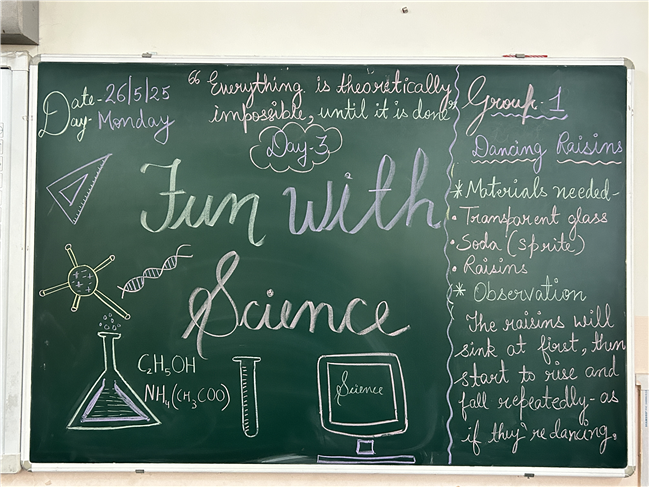 Date - 26/5/25
Day - Monday
“ Everything is theoretically
impossible, until it is done
Day-3
Fun with
Science
C₂H₅OH
NH₄(CH₃COO)
Science
Group-1
Dancing Raisins
* Materials needed-
• Transparent glass
• Soda (sprite)
• Raisins
* Observation
The raisins will
sink at first, then
start to rise and
fall repeatedly-as
if they're dancing.